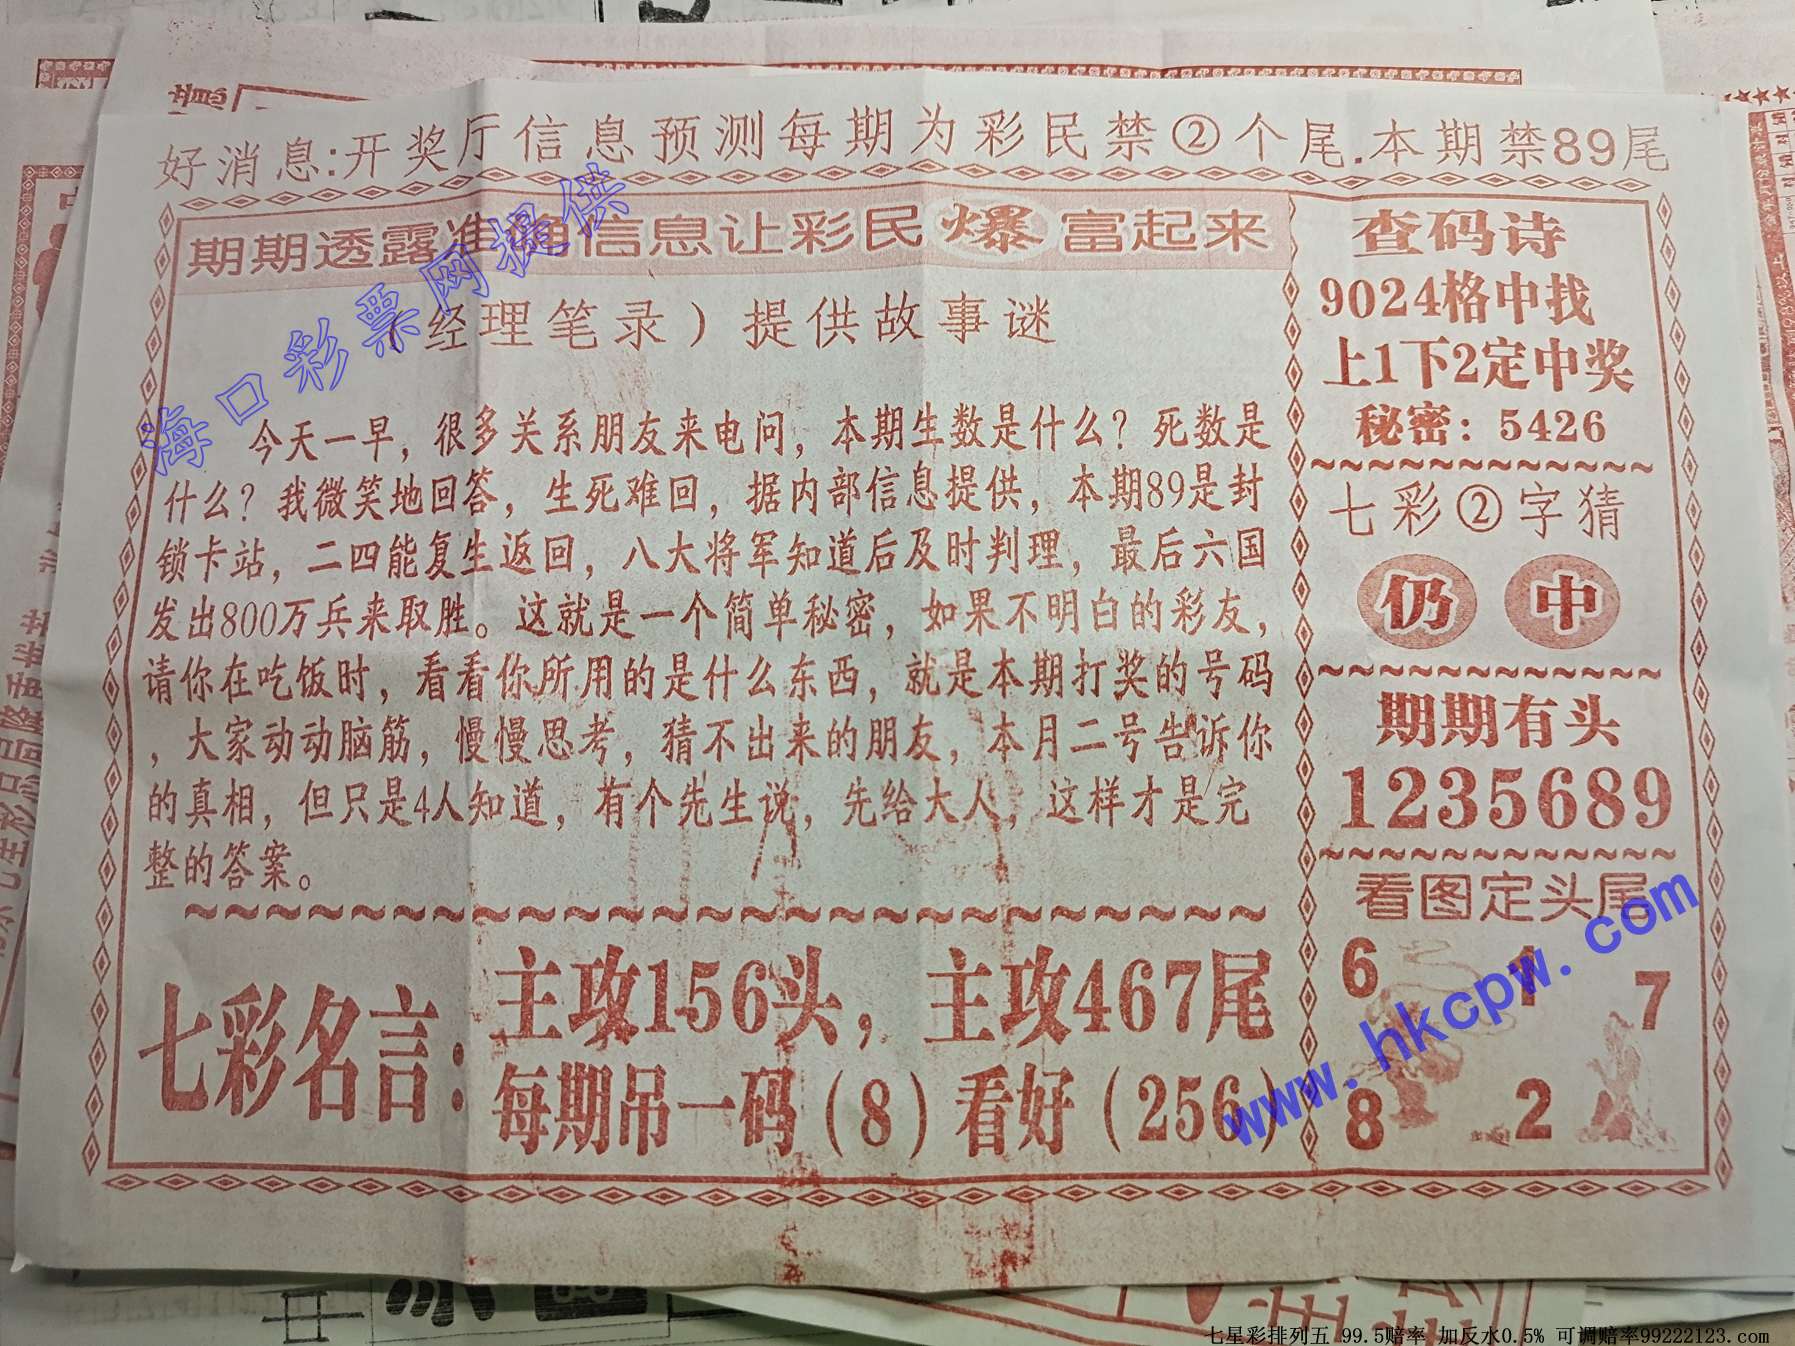 好消息:开奖厅信息预测每期为彩民禁②个尾.本期禁89尾
期期透露准确信息让彩民爆富起来
(经理笔录)提供故事谜
今天一早，很多关系朋友来电问，本期生数是什么？死数是
什么？我微笑地回答，生死难回，据内部信息提供，本期89是封
锁卡站，二四能复生返回，八大将军知道后及时判理，最后六国
发出800万兵来取胜。这就是一个简单秘密，如果不明白的彩友，
请你在吃饭时，看看你所用的是什么东西，就是本期打奖的号码
，大家动动脑筋，慢慢思考，猜不出来的朋友，本月二号告诉你
的真相，但只是4人知道，有个先生说，先给大人，这样才是完
整的答案。
七彩名言:
主攻156头，主攻467尾
每期吊一码(8)看好(256)
查码诗
9024格中找
上1下2定中奖
秘密：5426
七彩②字猜
仍 中
期期有头
1235689
看图定头尾
6 1 7
8 2
海口彩票网提供
www.hkcpw.com
七星彩排列五 99.5赔率 加反水0.5% 可调赔率99222123.com